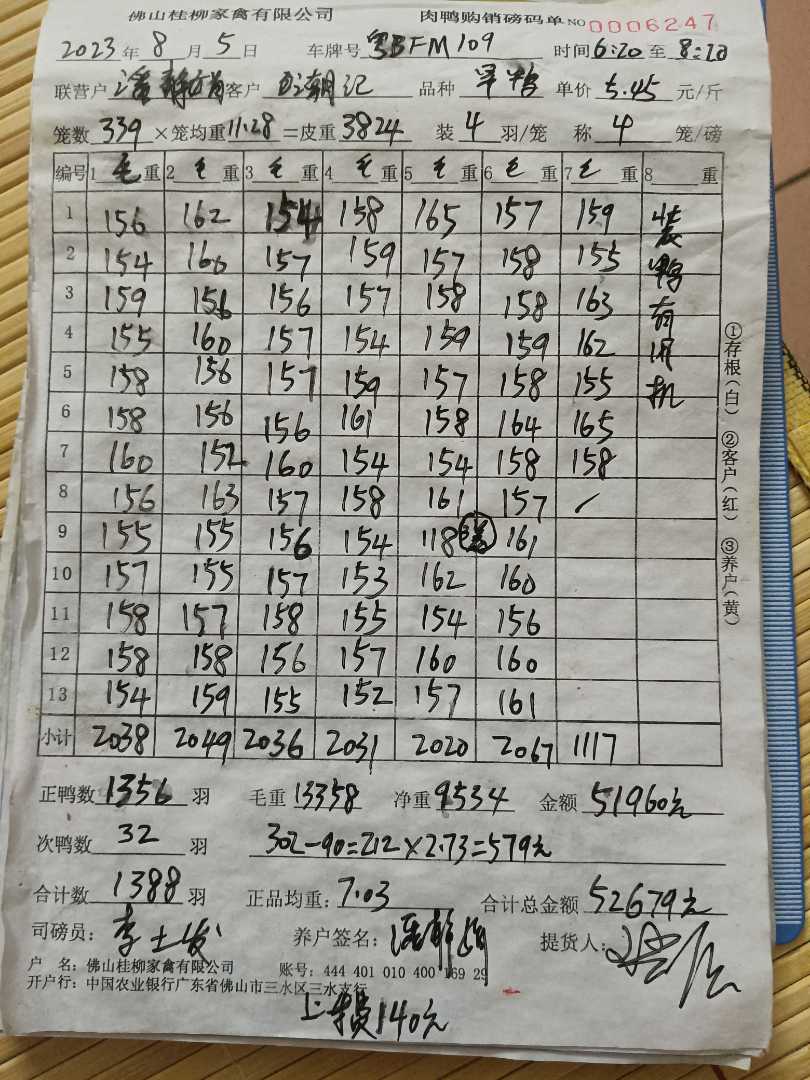 佛山桂柳家禽有限公司 肉鸭购销磅码单 NO 0006247
2023年8月5日 车牌号 粤BFM109 时间6:20至8:20
联营户 潘静娟 客户 品种 单价 5.45 元/斤
笼数 339 ×笼均重 11.28 =皮重 3824 装 4 羽/笼 称 4 笼/磅
编号 1 毛 重 2 毛 重 3 毛 重 4 毛 重 5 毛 重 6 毛 重 7 毛 重 8 重
1 156 162 154 158 165 157 159
2 154 160 157 159 157 158 155
3 159 156 156 157 158 158 163
4 155 160 157 154 159 159 162
5 158 156 157 159 157 158 155
6 158 156 156 161 158 164 165
7 160 152 160 154 154 158 158
8 156 163 157 158 161 157
9 155 155 156 154 118 161
10 157 155 157 153 162 160
11 158 157 158 155 154 156
12 158 158 156 157 160 160
13 154 159 155 152 157 161
小计 2038 2049 2036 2031 2020 2067 1117
装鸭有司机
①存根(白) ②客户(红) ③养户(黄)
正鸭数 1356 羽 毛重 13358 净重 9534 金额 51960元
次鸭数 32 羽 302-90=212×2.73=579元
合计数 1388 羽 正品均重: 7.03 合计总金额 52679元
司磅员: 李士发 养户签名: 潘静娟 提货人:
户 名: 佛山桂柳家禽有限公司 账号: 444 401 010 400 169 29
开户行: 中国农业银行广东省佛山市三水区三水支行
上车费140元